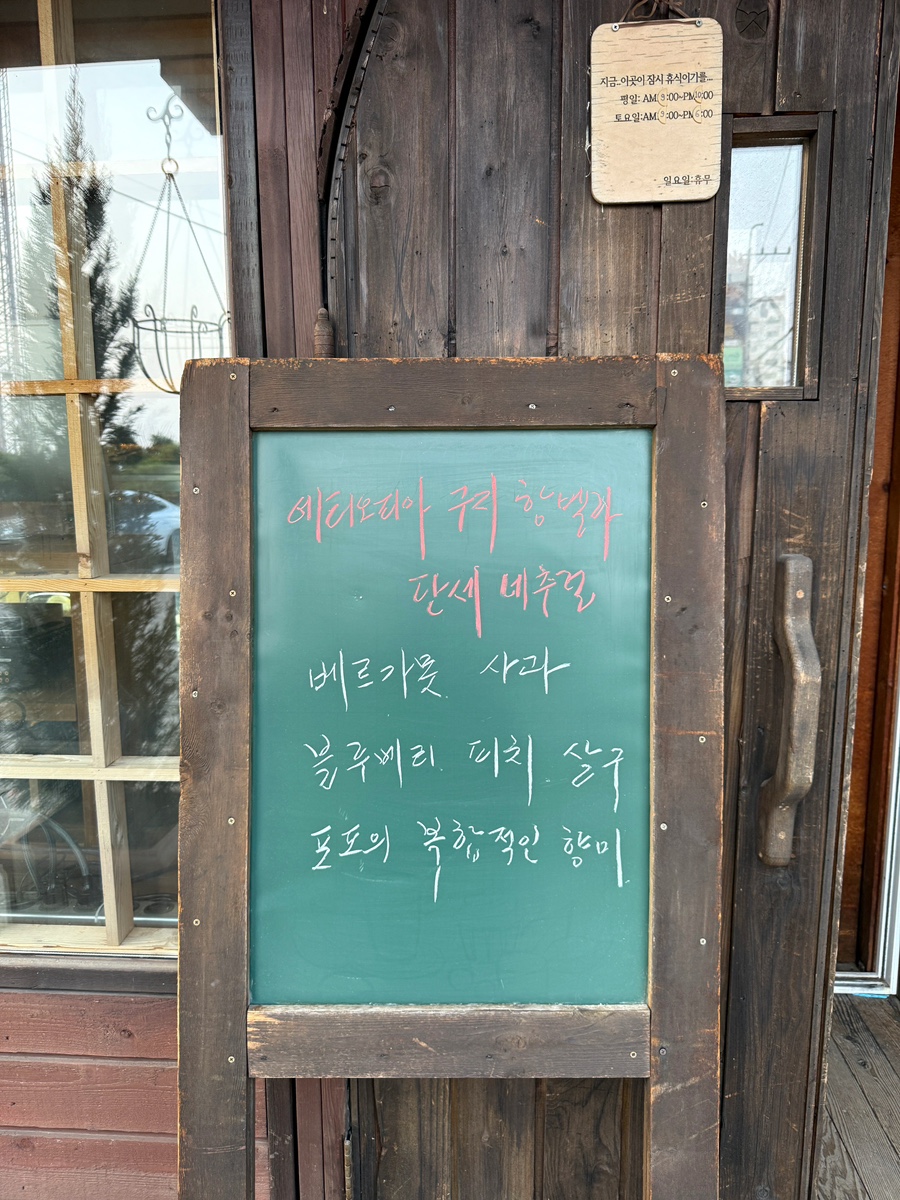 지금..이곳이 잠시 휴식이기를...
평일: AM 9:00~PM10:00
토요일:AM 9:00~PM 6:00
일요일:휴무
에티오피아 구지 함벨라
단세 네추럴
베르가못 사과
블루베리. 피치. 살구
포포의 복합적인 향미.